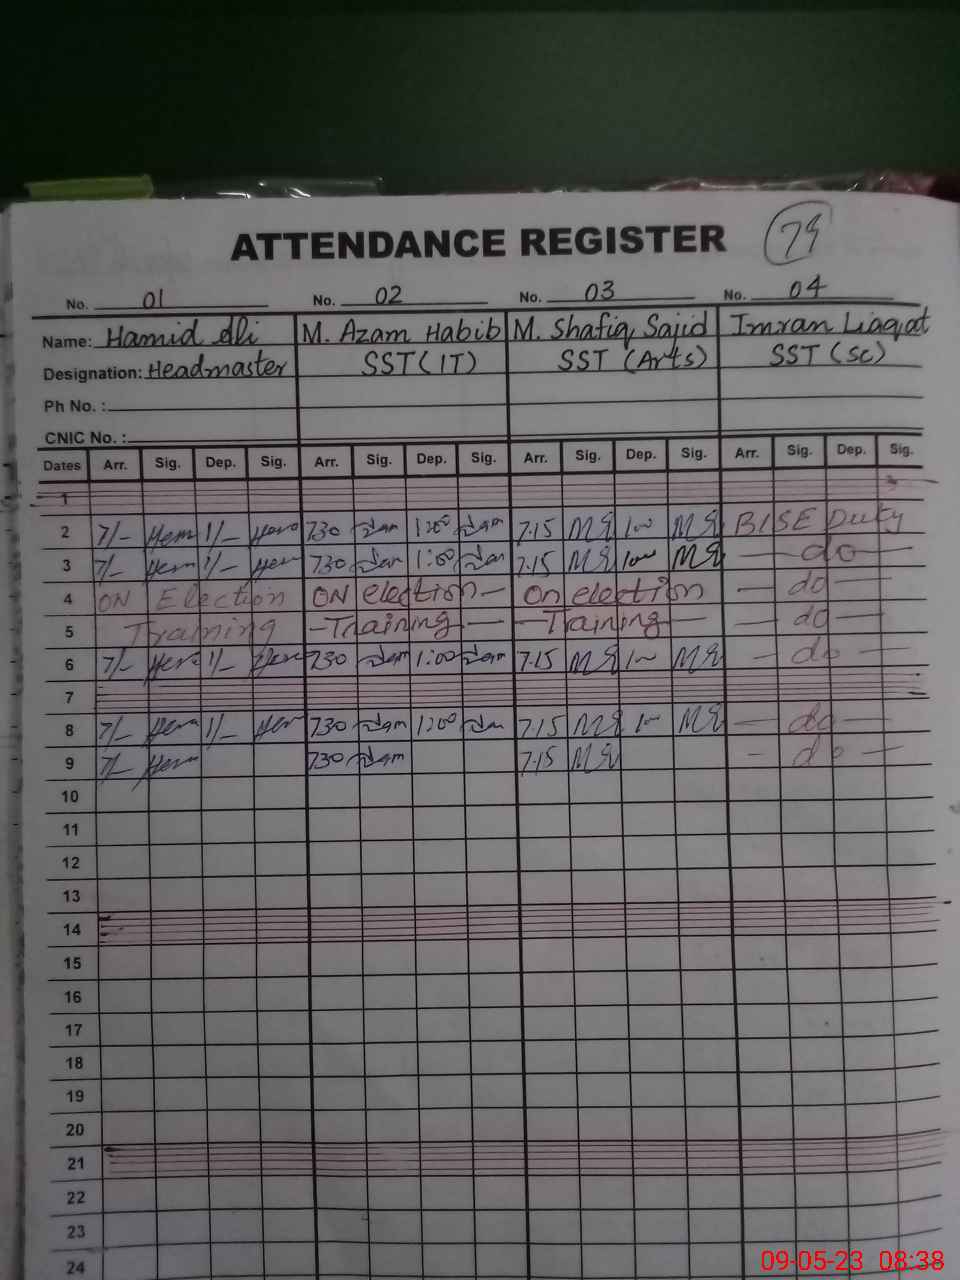 ATTENDANCE REGISTER 79
No. 01 No. 02 No. 03 No. 04
Name: Hamid Ali M. Azam Habib M. Shafiq Sajid Imran Liaqat
Designation: Headmaster SST (IT) SST (Arts) SST (Sc)
Ph No. :
CNIC No. :
Dates Arr. Sig. Dep. Sig. Arr. Sig. Dep. Sig. Arr. Sig. Dep. Sig. Arr. Sig. Dep. Sig.
1
2 7/- 1/- 7.30 1:00 7.15 100 BISE Duty
3 7/- 1/- 7.30 1:00 7.15 100 — do —
4 ON Election ON election — On election — do —
5 Training — Training — — Training — — do —
6 7/- 1/- 7.30 1:00 7.15 1— — do —
7
8 7/- 1/- 7.30 1:00 7.15 1— — do —
9 7/- 7.30 7.15 — do —
10
11
12
13
14
15
16
17
18
19
20
21
22
23
24
09-05-23 08:38